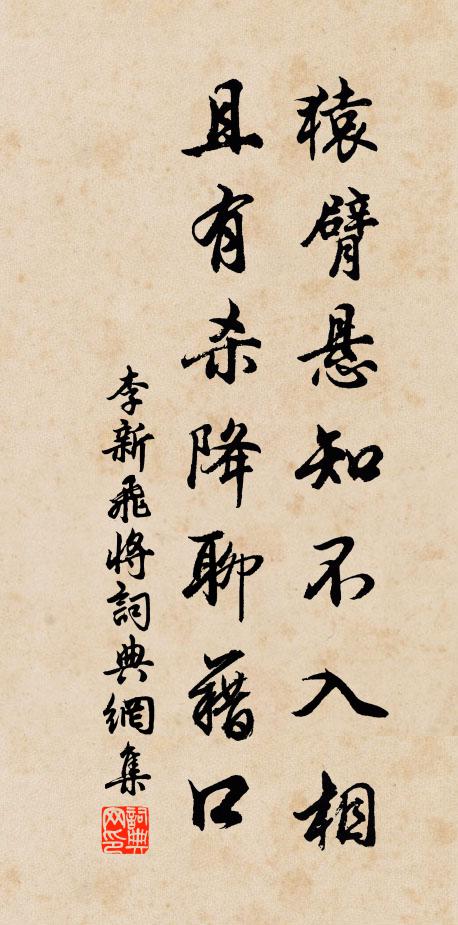 猿臂悬知不入相
且有杀降聊藉口
李新飛將詞典網集
詞典网印